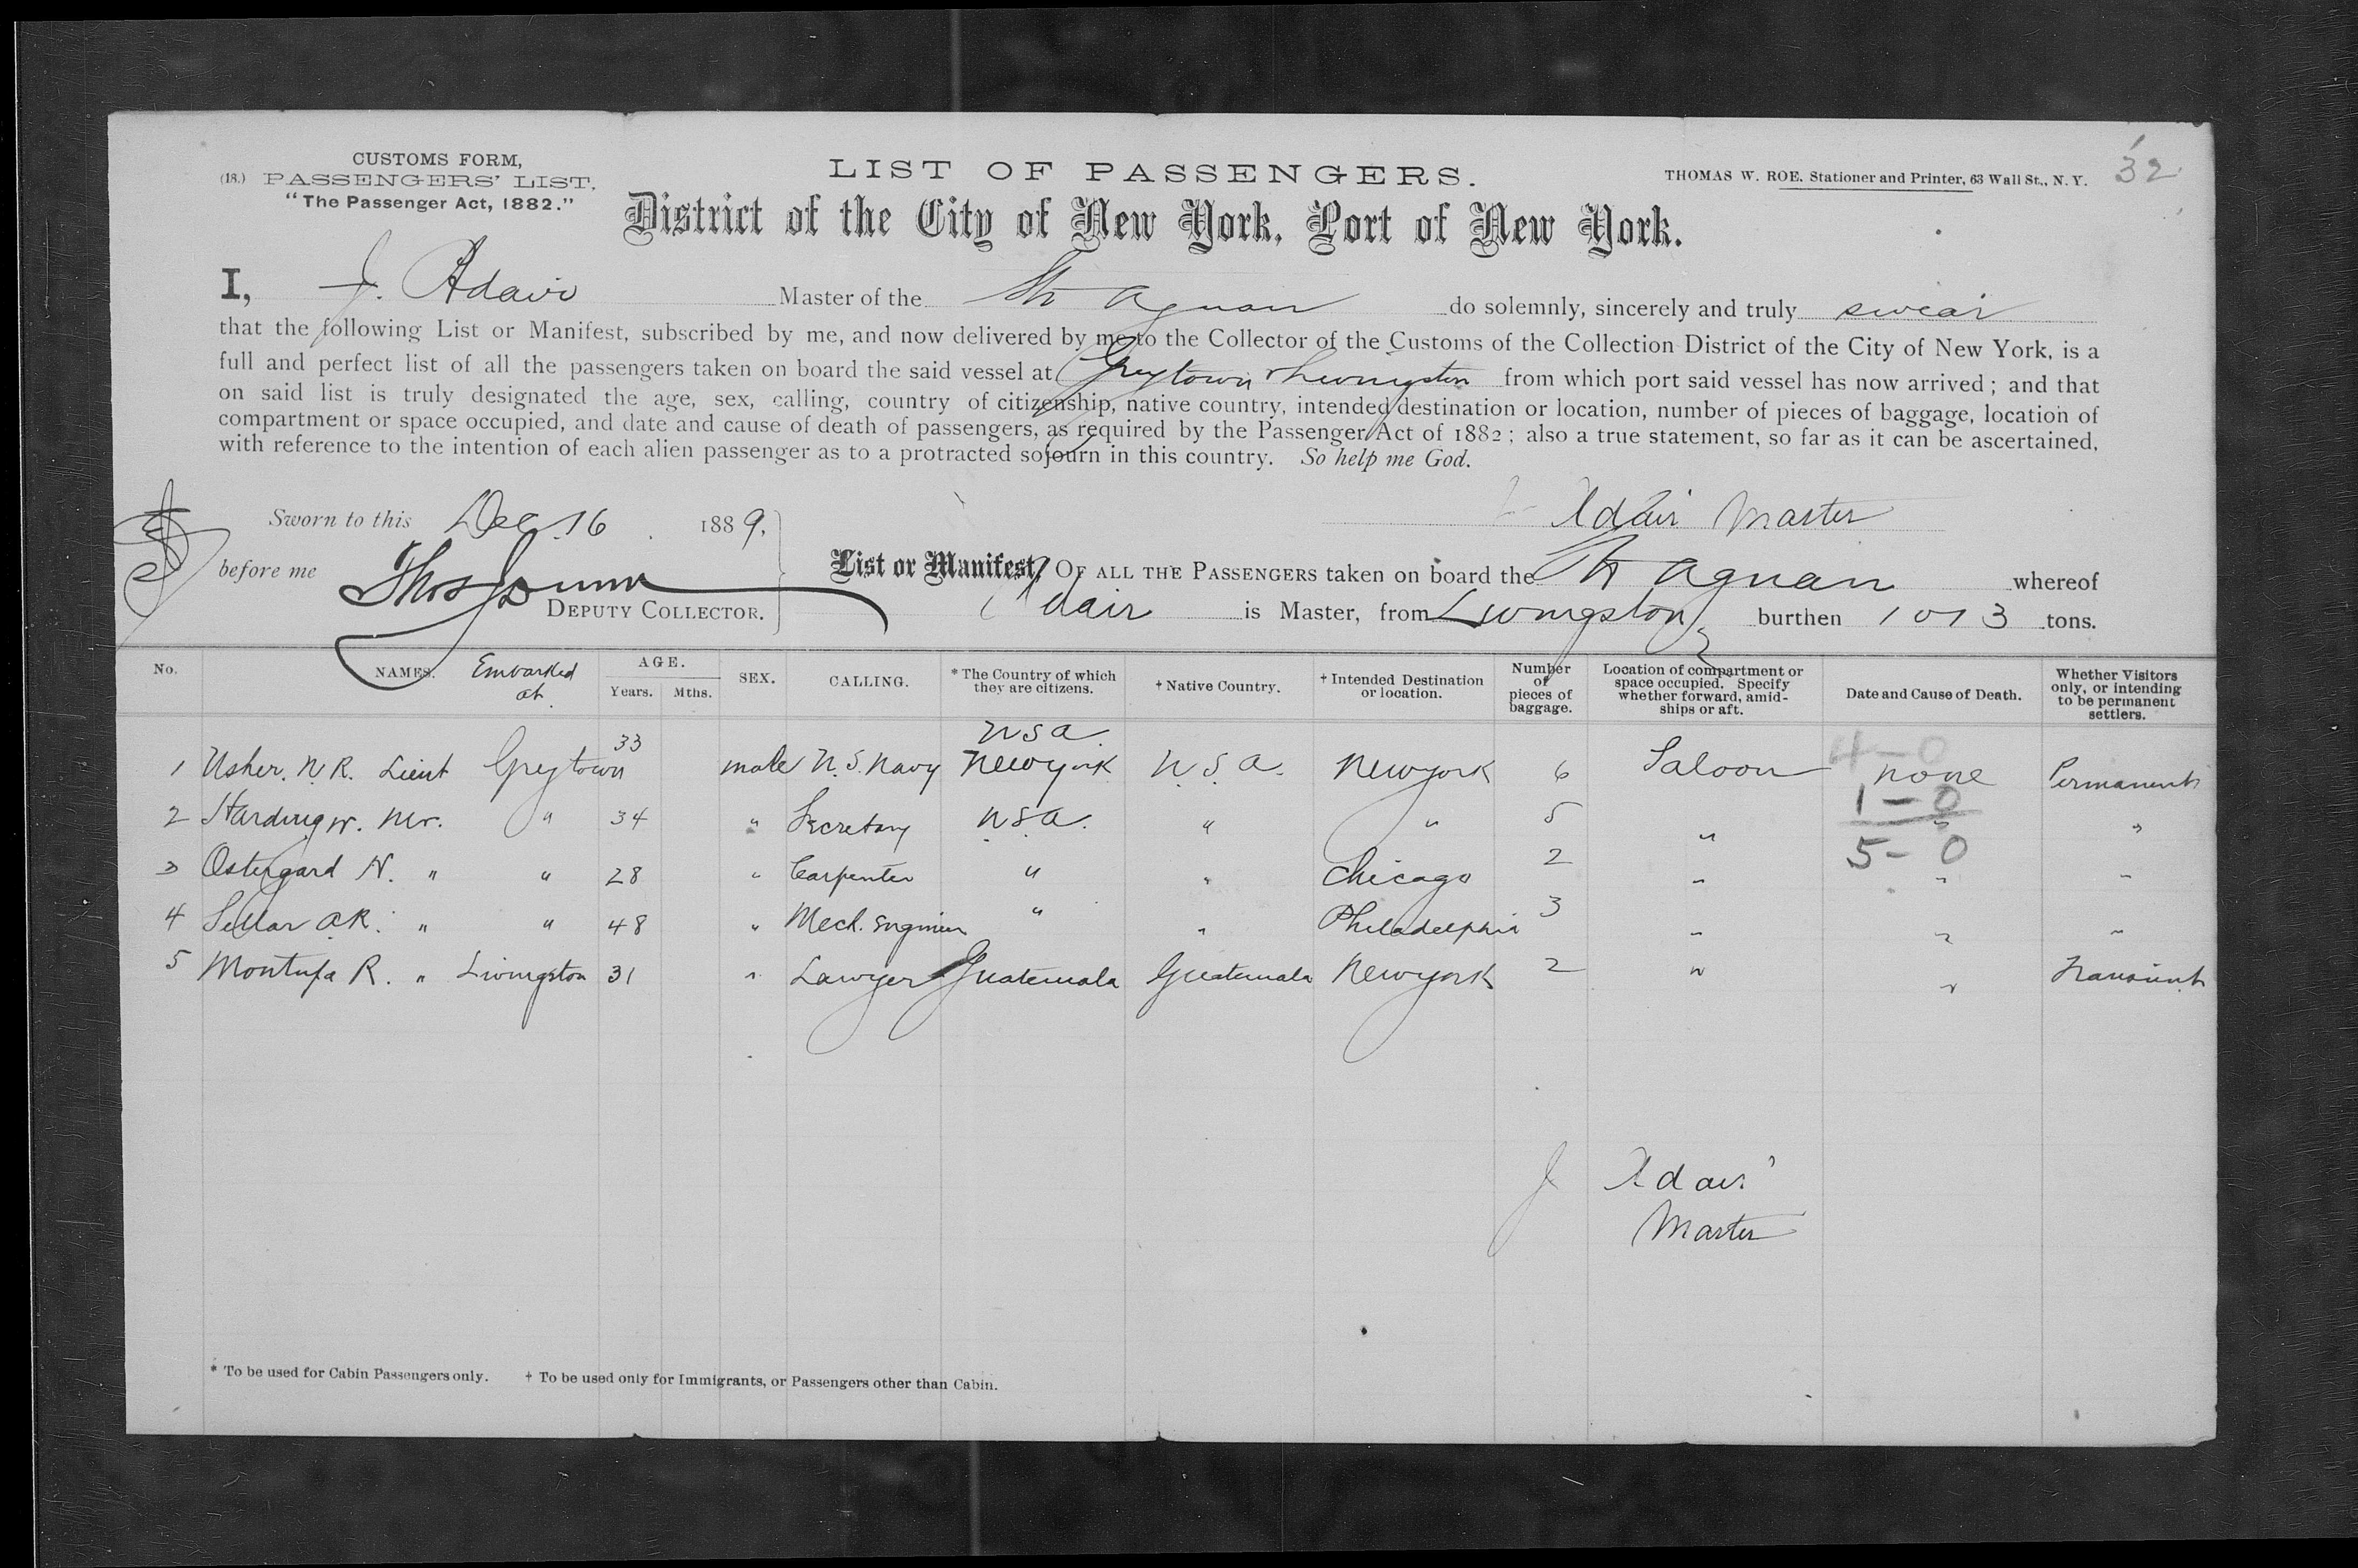 CUSTOMS FORM,
(18.) PASSENGERS' LIST.
"The Passenger Act, 1882."
LIST OF PASSENGERS.
THOMAS W. ROE. Stationer and Printer, 63 Wall St., N. Y.
32
District of the City of New York, Port of New York.
I, J. Adair Master of the Str Aguan do solemnly, sincerely and truly swear
that the following List or Manifest, subscribed by me, and now delivered by me to the Collector of the Customs of the Collection District of the City of New York, is a
full and perfect list of all the passengers taken on board the said vessel at Greytown & Livingston from which port said vessel has now arrived; and that
on said list is truly designated the age, sex, calling, country of citizenship, native country, intended destination or location, number of pieces of baggage, location of
compartment or space occupied, and date and cause of death of passengers, as required by the Passenger Act of 1882; also a true statement, so far as it can be ascertained,
with reference to the intention of each alien passenger as to a protracted sojourn in this country. So help me God.
J Adair Master
Sworn to this Dec 16 1889,
before me Thos Dunn
DEPUTY COLLECTOR.
List or Manifest, OF ALL THE PASSENGERS taken on board the Str Aguan whereof
Adair is Master, from Livingston burthen 1013 tons.
No. NAMES. Embarked at AGE. Years. Mths. SEX. CALLING. * The Country of which they are citizens. † Native Country. † Intended Destination or location. Number of pieces of baggage. Location of compartment or space occupied. Specify whether forward, amid-ships or aft. Date and Cause of Death. Whether Visitors only, or intending to be permanent settlers.
U S A.
4-0
1 Usher. N R. Lieut Greytown 33 male U.S. Navy New york U.S.A. New york 6 Saloon none Permanent
1-0
2 Harding W. Mr. " 34 " Secretary U S A. " " 5 " " "
5-0
3 Ostergard N. " " 28 " Carpenter " " Chicago 2 " " "
4 Sellar A R. " " 48 " Mech. Engineer " " Philadelphia 3 " " "
5 Montufa R. " Livingston 31 " Lawyer Guatemala Guatemala New york 2 " " Transient
J Adair
Master
* To be used for Cabin Passengers only. † To be used only for Immigrants, or Passengers other than Cabin.